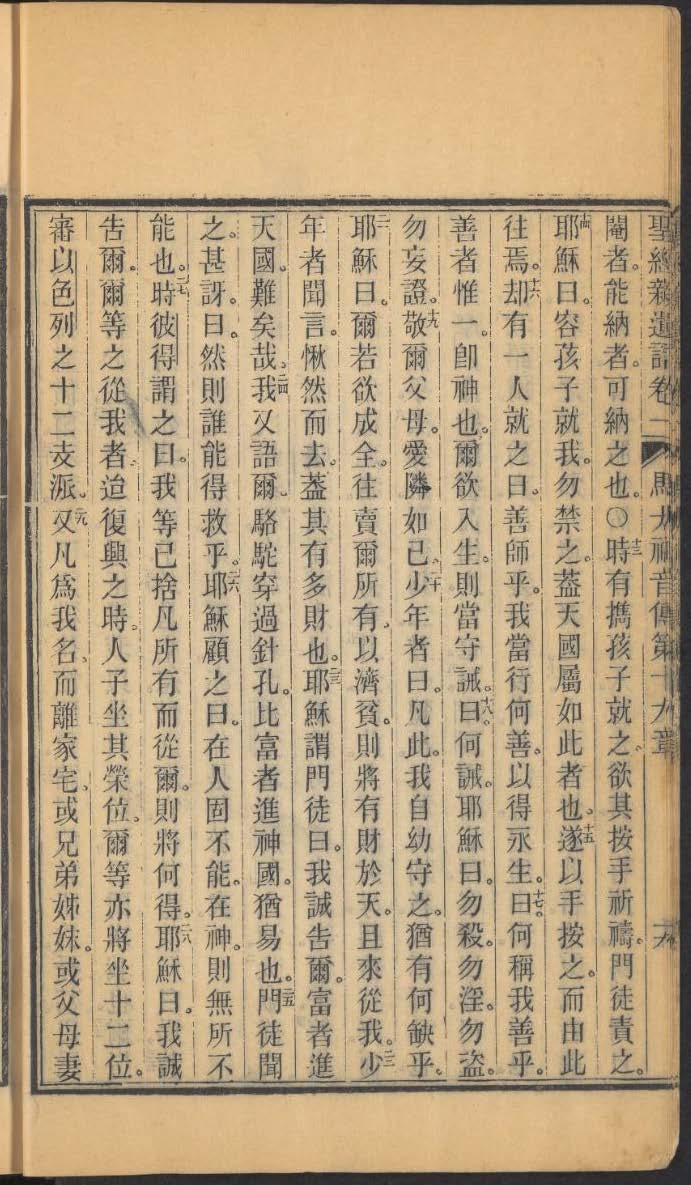 聖經新遺詔卷一 馬太福音傳第十九章
閹者。能納者。可納之也。〇十三時有攜孩子就之。欲其按手祈禱。門徒責之。
十四耶穌曰。容孩子就我。勿禁之。葢天國屬如此者也。十五遂以手按之。而由此
往焉。十六却有一人就之曰。善師乎。我當行何善。以得永生。十七曰。何稱我善乎。
善者惟一。卽神也。爾欲入生。則當守誡。十八曰。何誡。耶穌曰。勿殺。勿淫。勿盜。
勿妄證。十九敬爾父母。愛隣如己。二十少年者曰。凡此。我自幼守之。猶有何缺乎。
二一耶穌曰。爾若欲成全。往賣爾所有。以濟貧。則將有財於天。且來從我。二二少
年者聞言。愀然而去。葢其有多財也。二三耶穌謂門徒曰。我誠吿爾。富者進
天國。難矣哉。二四我又語爾。駱駝穿過針孔。比富者進神國。猶易也。二五門徒聞
之。甚訝。曰。然則誰能得救乎。二六耶穌顧之曰。在人固不能。在神。則無所不
能也。二七時彼得謂之曰。我等已捨凡所有而從爾。則將何得。二八耶穌曰。我誠
吿爾。爾等之從我者。迨復興之時。人子坐其榮位。爾等亦將坐十二位。
審以色列之十二支派。二九又凡爲我名。而離家宅。或兄弟姊妹。或父母妻